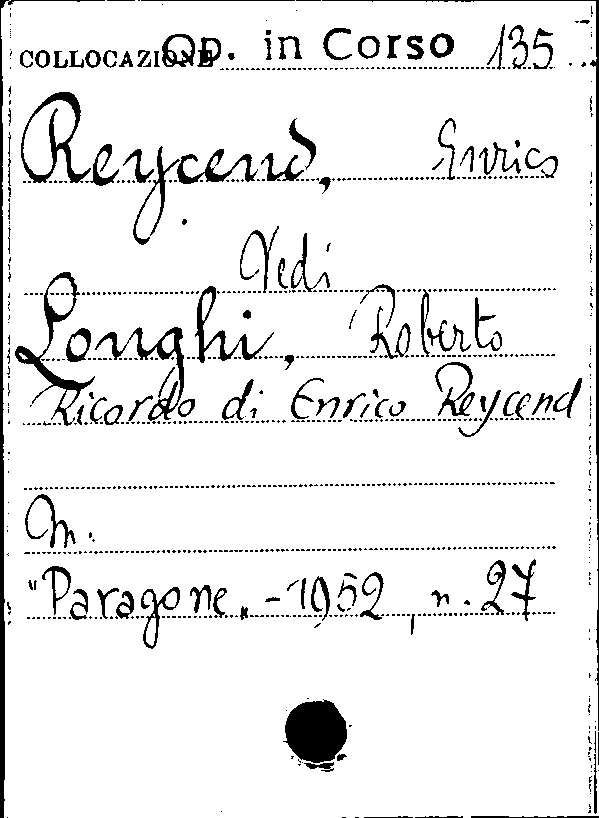 COLLOCAZIONE Op. in Corso 135
Reycend, Enrico
Vedi
Longhi, Roberto
Ricordo di Enrico Reycend
In.
"Paragone" - 1952, n. 27